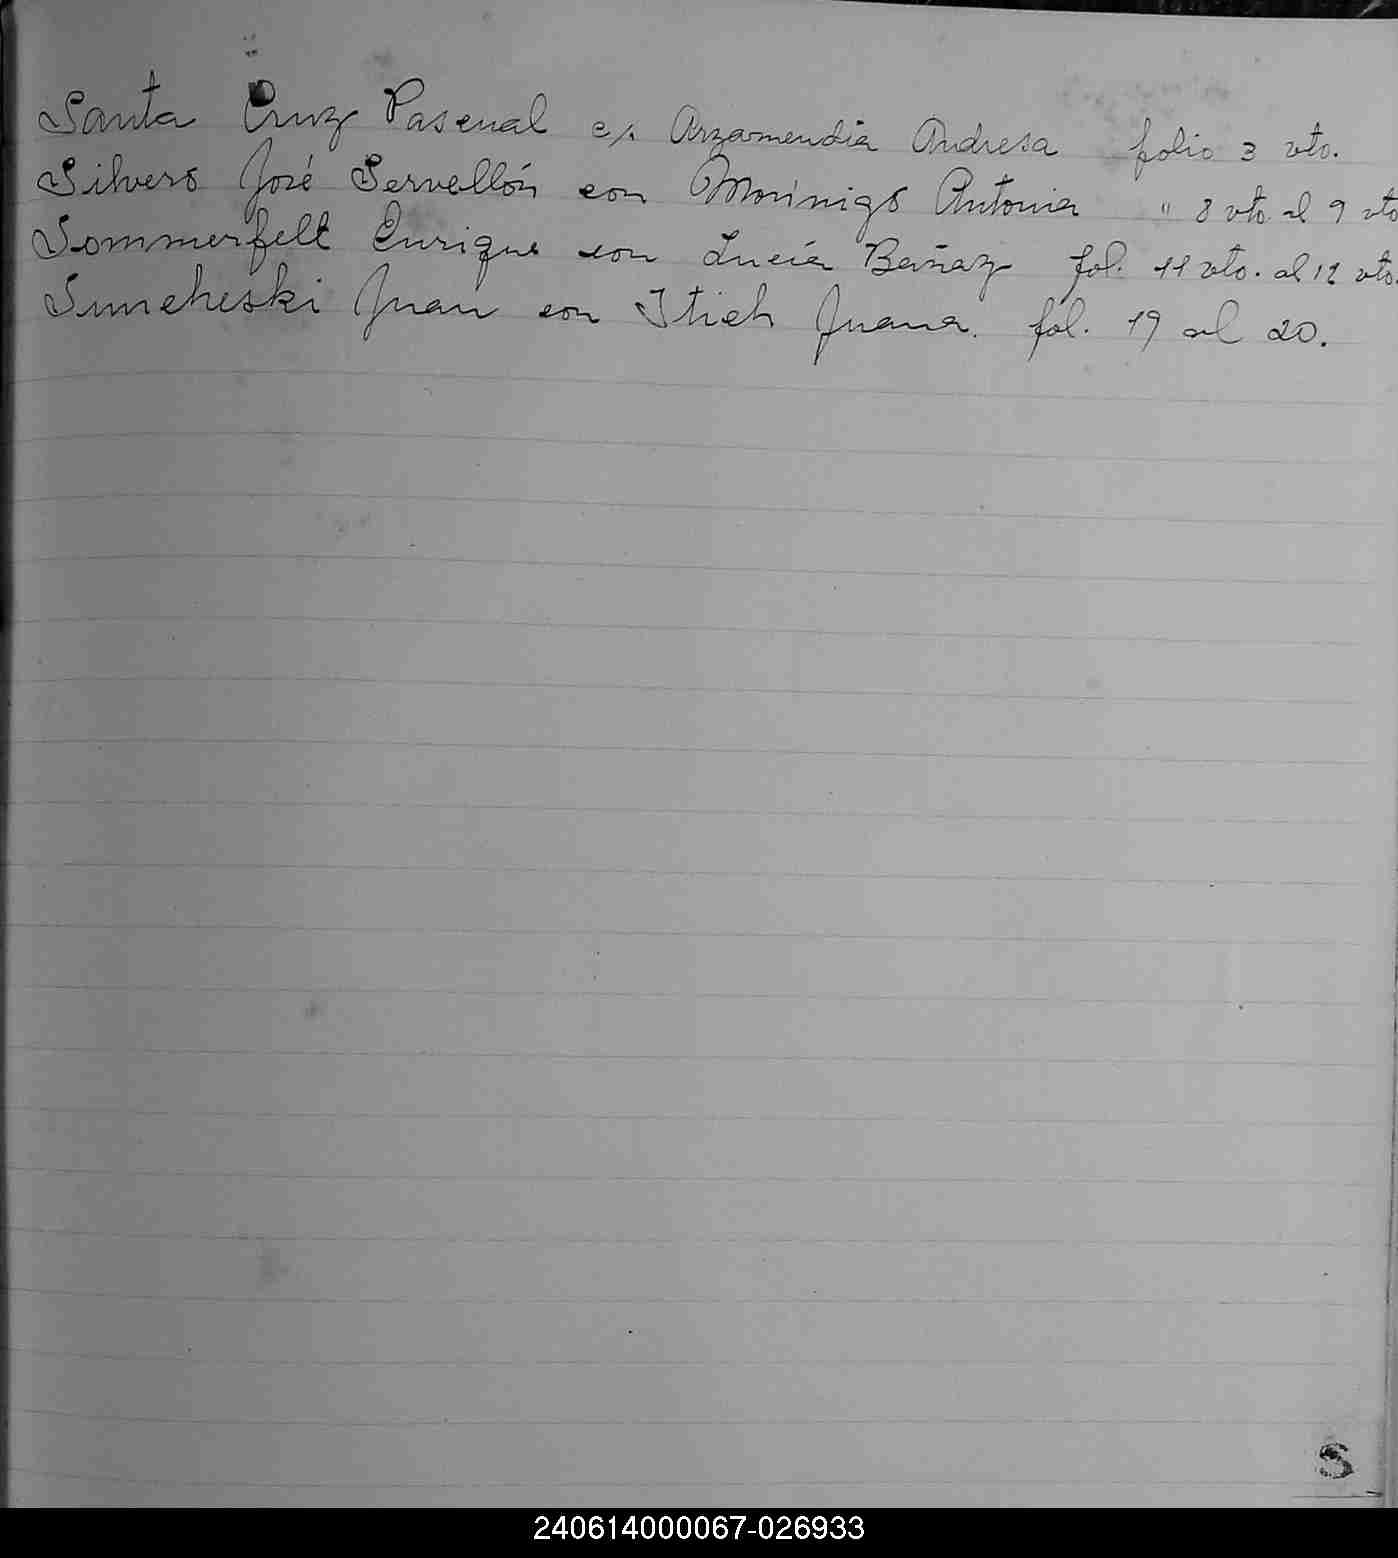 Santa Cruz Pascual c/. Arzamendia Andresa folio 3 vto.
Silvero José Servellón con Morinigo Antonia " 8 vto al 9 vto
Sommerfelt Enrique con Lucía Bañaz fol. 11 vto. al 12 vto.
Juan con Itich Juana. fol. 19 al 20.
S
240614000067-026933